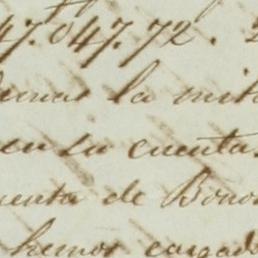 47.047.72.
la mita
en su cuenta
uenta de Bono
hemos cargad